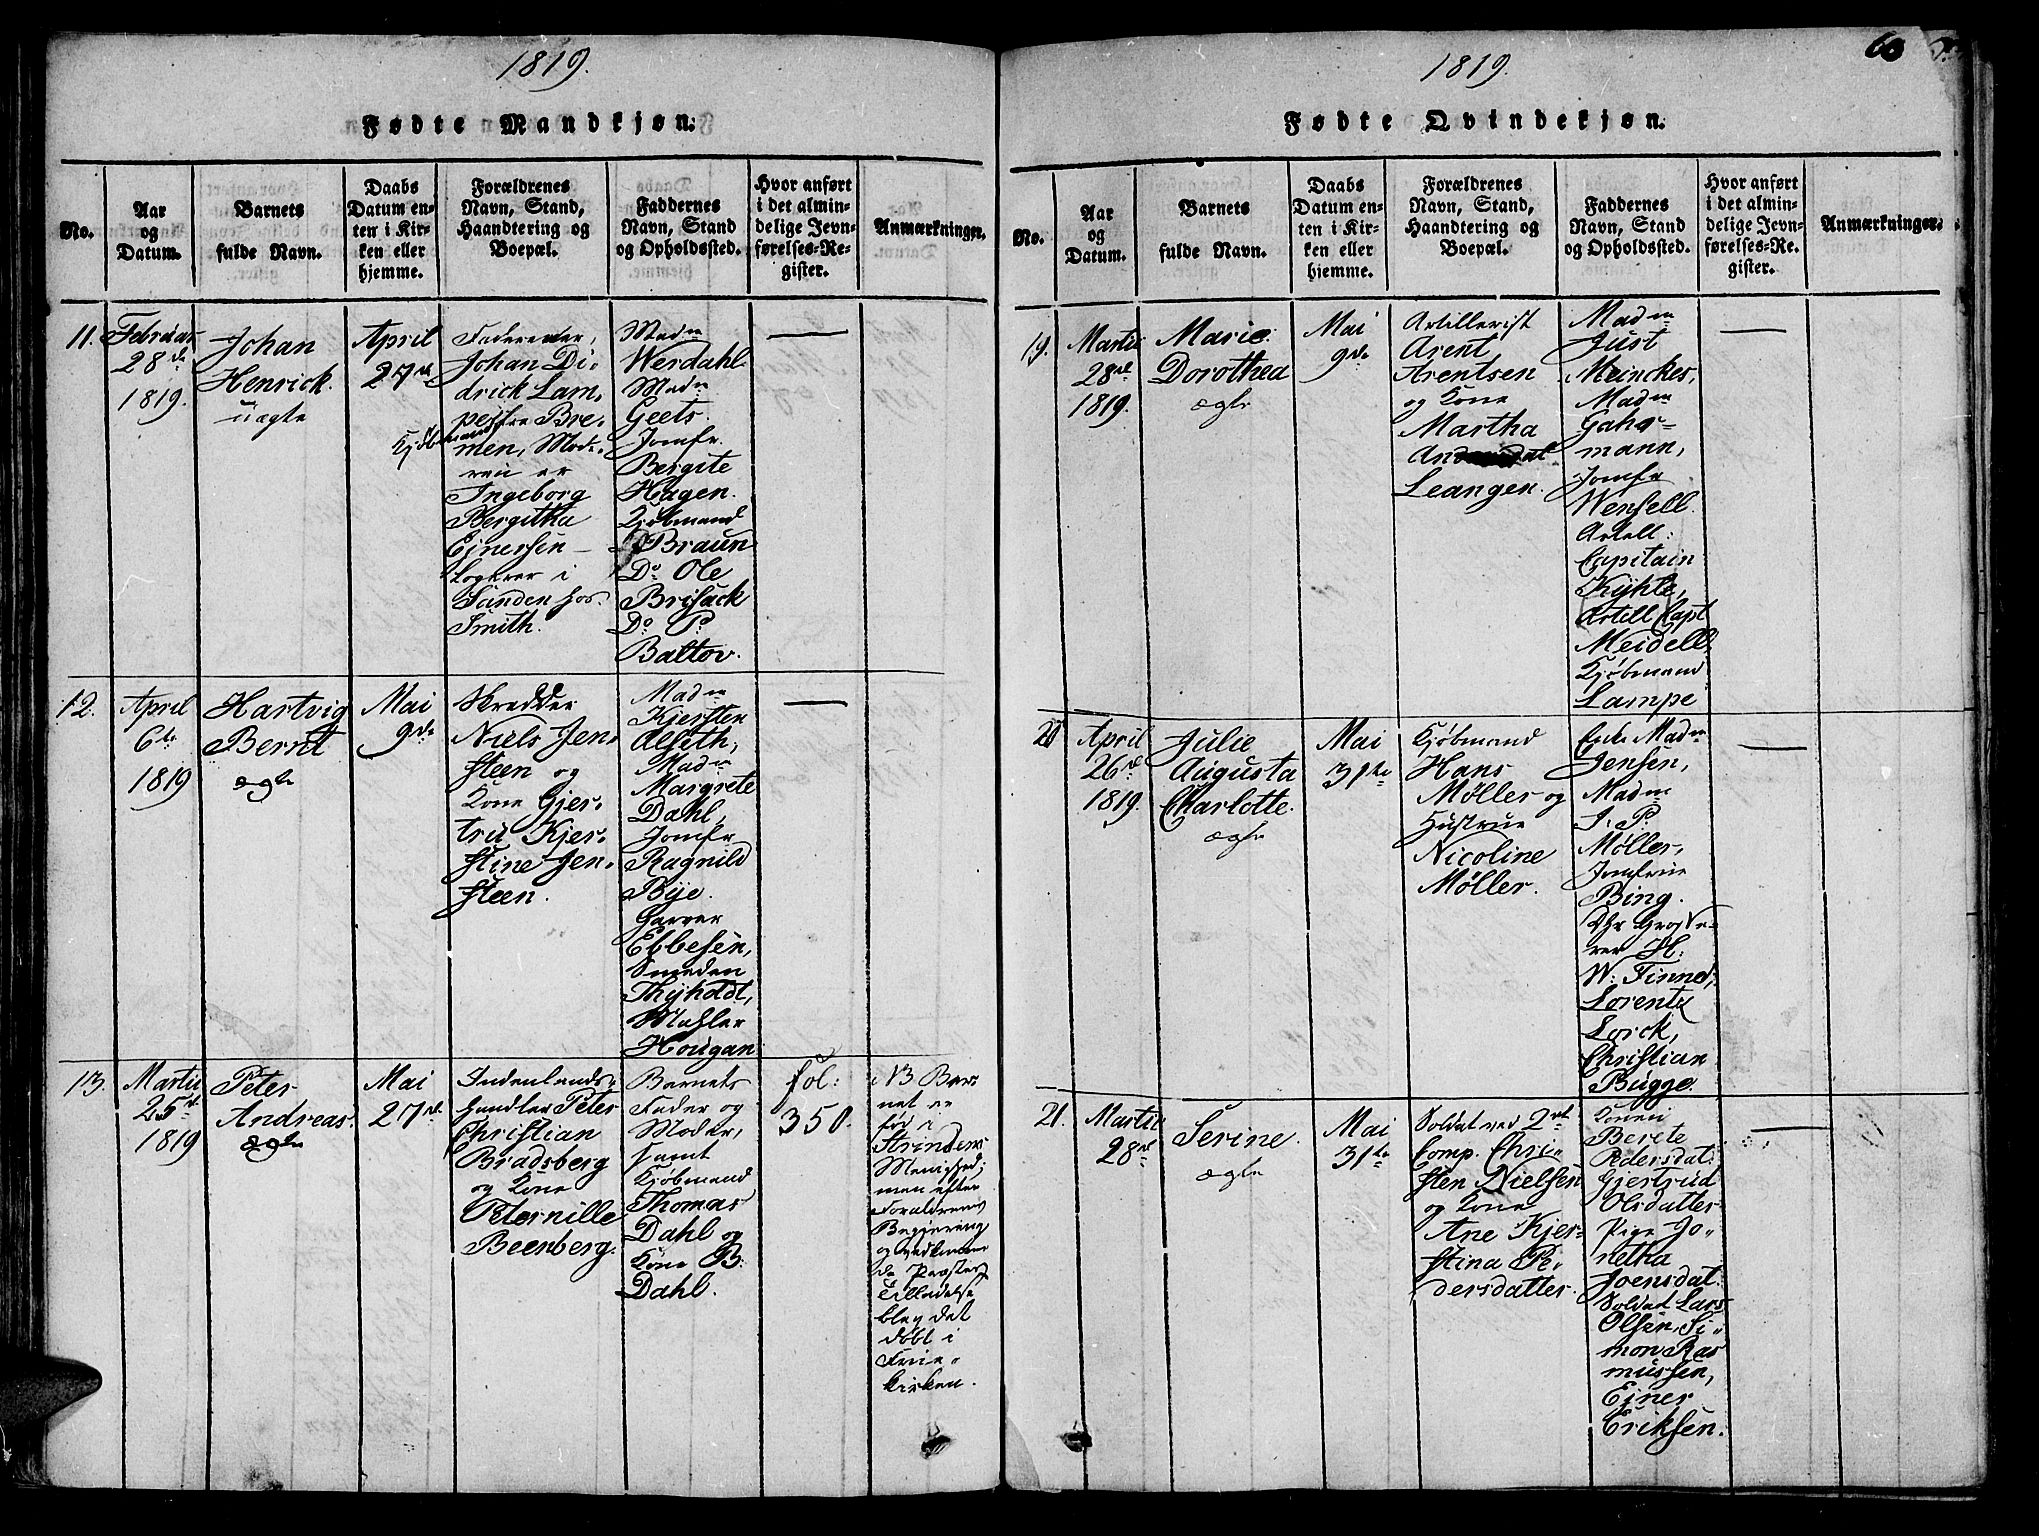 1819.
Fødte Mandkjøn.
No.
Aar
og
Datum.
Barnets
fulde Navn.
Daabs
Datum en-
ten i Kir-
ken eller
hjemme.
Forældrenes
Navn, Stand,
Haandtering og
Boepæl.
Faddernes
Navn, Stand
og Opholdssted.
Hvor anført
i det almin-
delige Jevn-
førelses-Re-
gister.
Anmærkninger.
11.
Februar
28de
1819.
Johan
Henrick.
uægte
April
27de
Faderen er,
Johan Di-
drick Lam-
pe fra Bre-
Kjøbmand
men, Mode-
ren er
Ingeborg
Bergitha
Ejnersen
Logerer i
Sanden hos
Smith.
Madm
Werdahl
Madm
Geets.
Jomfr.
Bergite
Hagen.
Kjøbmand
Braun
Do Ole
Brisack
Do P.
Baltov.
12.
April
6te
1819
Hartvig
Bernt
ægte
Mai
9de
Skredder
Niels Jen-
steen og
Kone Gjer-
trud Kjer-
stine Jen-
steen.
Madm
Kjersten
Alseth,
Madm
Margrete
Dahl,
Jomfr
Ragnild
Bye.
Garver
Ebbesen,
Smeden
Thyholdt,
Mahler
Hougan
13.
Martii
25de
1819
Peter
Andreas.
ægte
Mai
27de
Indenlands-
handler Peter
Christian
Bradsberg
og Kone
Peternille
Beenberg.
Barnets
Fader og
Moder,
samt
Kjøbmand
Thomas
Dahl og
Kone B.
Dahl.
fol:
350.
NB Bar-
net er
fød i
Strindens
Menighed;
men efter
Forældrenes
Begjering
og vedkommen-
de Præsters
Tilladelse
blev det
døbt i
Frue-
kirken.
1819.
63
Fødte Qvindekjøn.
No.
Aar
og
Datum.
Barnets
fulde Navn.
Daabs
Datum en-
ten i Kir-
ken eller
hjemme.
Forældrenes
Navn, Stand,
Haandtering og
Boepæl.
Faddernes
Navn, Stand
og Opholdssted.
Hvor anført
i det almin-
delige Jevn-
førelses-Re-
gister.
Anmærkninger.
19.
Martii
28de
1819.
Marie
Dorothea
ægte
Mai
9de
Artillerist
Arent
Arentsen
og Kone
Martha
Leangen.
Madm
Just
Meinckes,
Madm
mann,
Jomfr
Wensell
Artell:
Capitain
Kyhle,
Artell Capt
Meidell
Kjøbmand
Lampe
20
April
26de
1819.
Julie
Augusta
Charlotte.
ægte
Mai
31te
Kjøbmand
Hans
Møller og
Hustrue
Nicoline
Møller.
Enke Madm
Jensen,
Madm
I. P.
Møller,
Jomfrue
Bing.
Hr Grosse-
rer H:
W: Finne,
Lorentz
Lorck,
Christian
Bugge.
21.
Martii
28de
Serine.
ægte
Mai
31te
Soldat ved 2det
Comp. Chri-
sten Nielsen
og Kone
Ane Kjer-
stina Pe-
dersdatter.
Konen
Berete
Pedersdat:
Gjertrud
Olsdatter
Pige Jo-
netha
Joensdat:
Soldat Lars
Olsen, Si-
mon Ras
mussen,
Ejner
Eriksen.